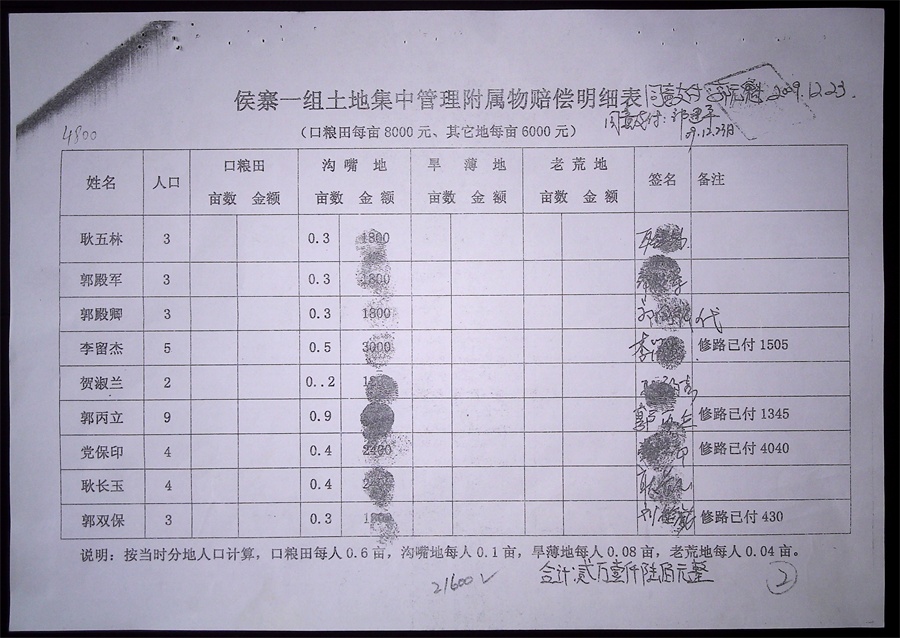 侯寨一组土地集中管理附属物赔偿明细表 同意支付 2009.12.23.
(口粮田每亩 8000 元、其它地每亩 6000 元) 同意支付:
09.12.23日
4800
姓名 人口 口粮田 沟嘴地 旱薄地 老荒地 签名 备注
亩数 金额 亩数 金额 亩数 金额 亩数 金额
耿五林 3 0.3 1800
郭殿军 3 0.3 1800
郭殿卿 3 0.3 1800 代
李留杰 5 0.5 3000 修路已付 1505
贺淑兰 2 0..2
郭丙立 9 0.9 修路已付 1345
党保印 4 0.4 2400 修路已付 4040
耿长玉 4 0.4
郭双保 3 0.3 1800 修路已付 430
说明：按当时分地人口计算，口粮田每人 0.6 亩，沟嘴地每人 0.1 亩，旱薄地每人 0.08 亩，老荒地每人 0.04 亩。
21600 ✓ 合计:贰万壹仟陆佰元整 2